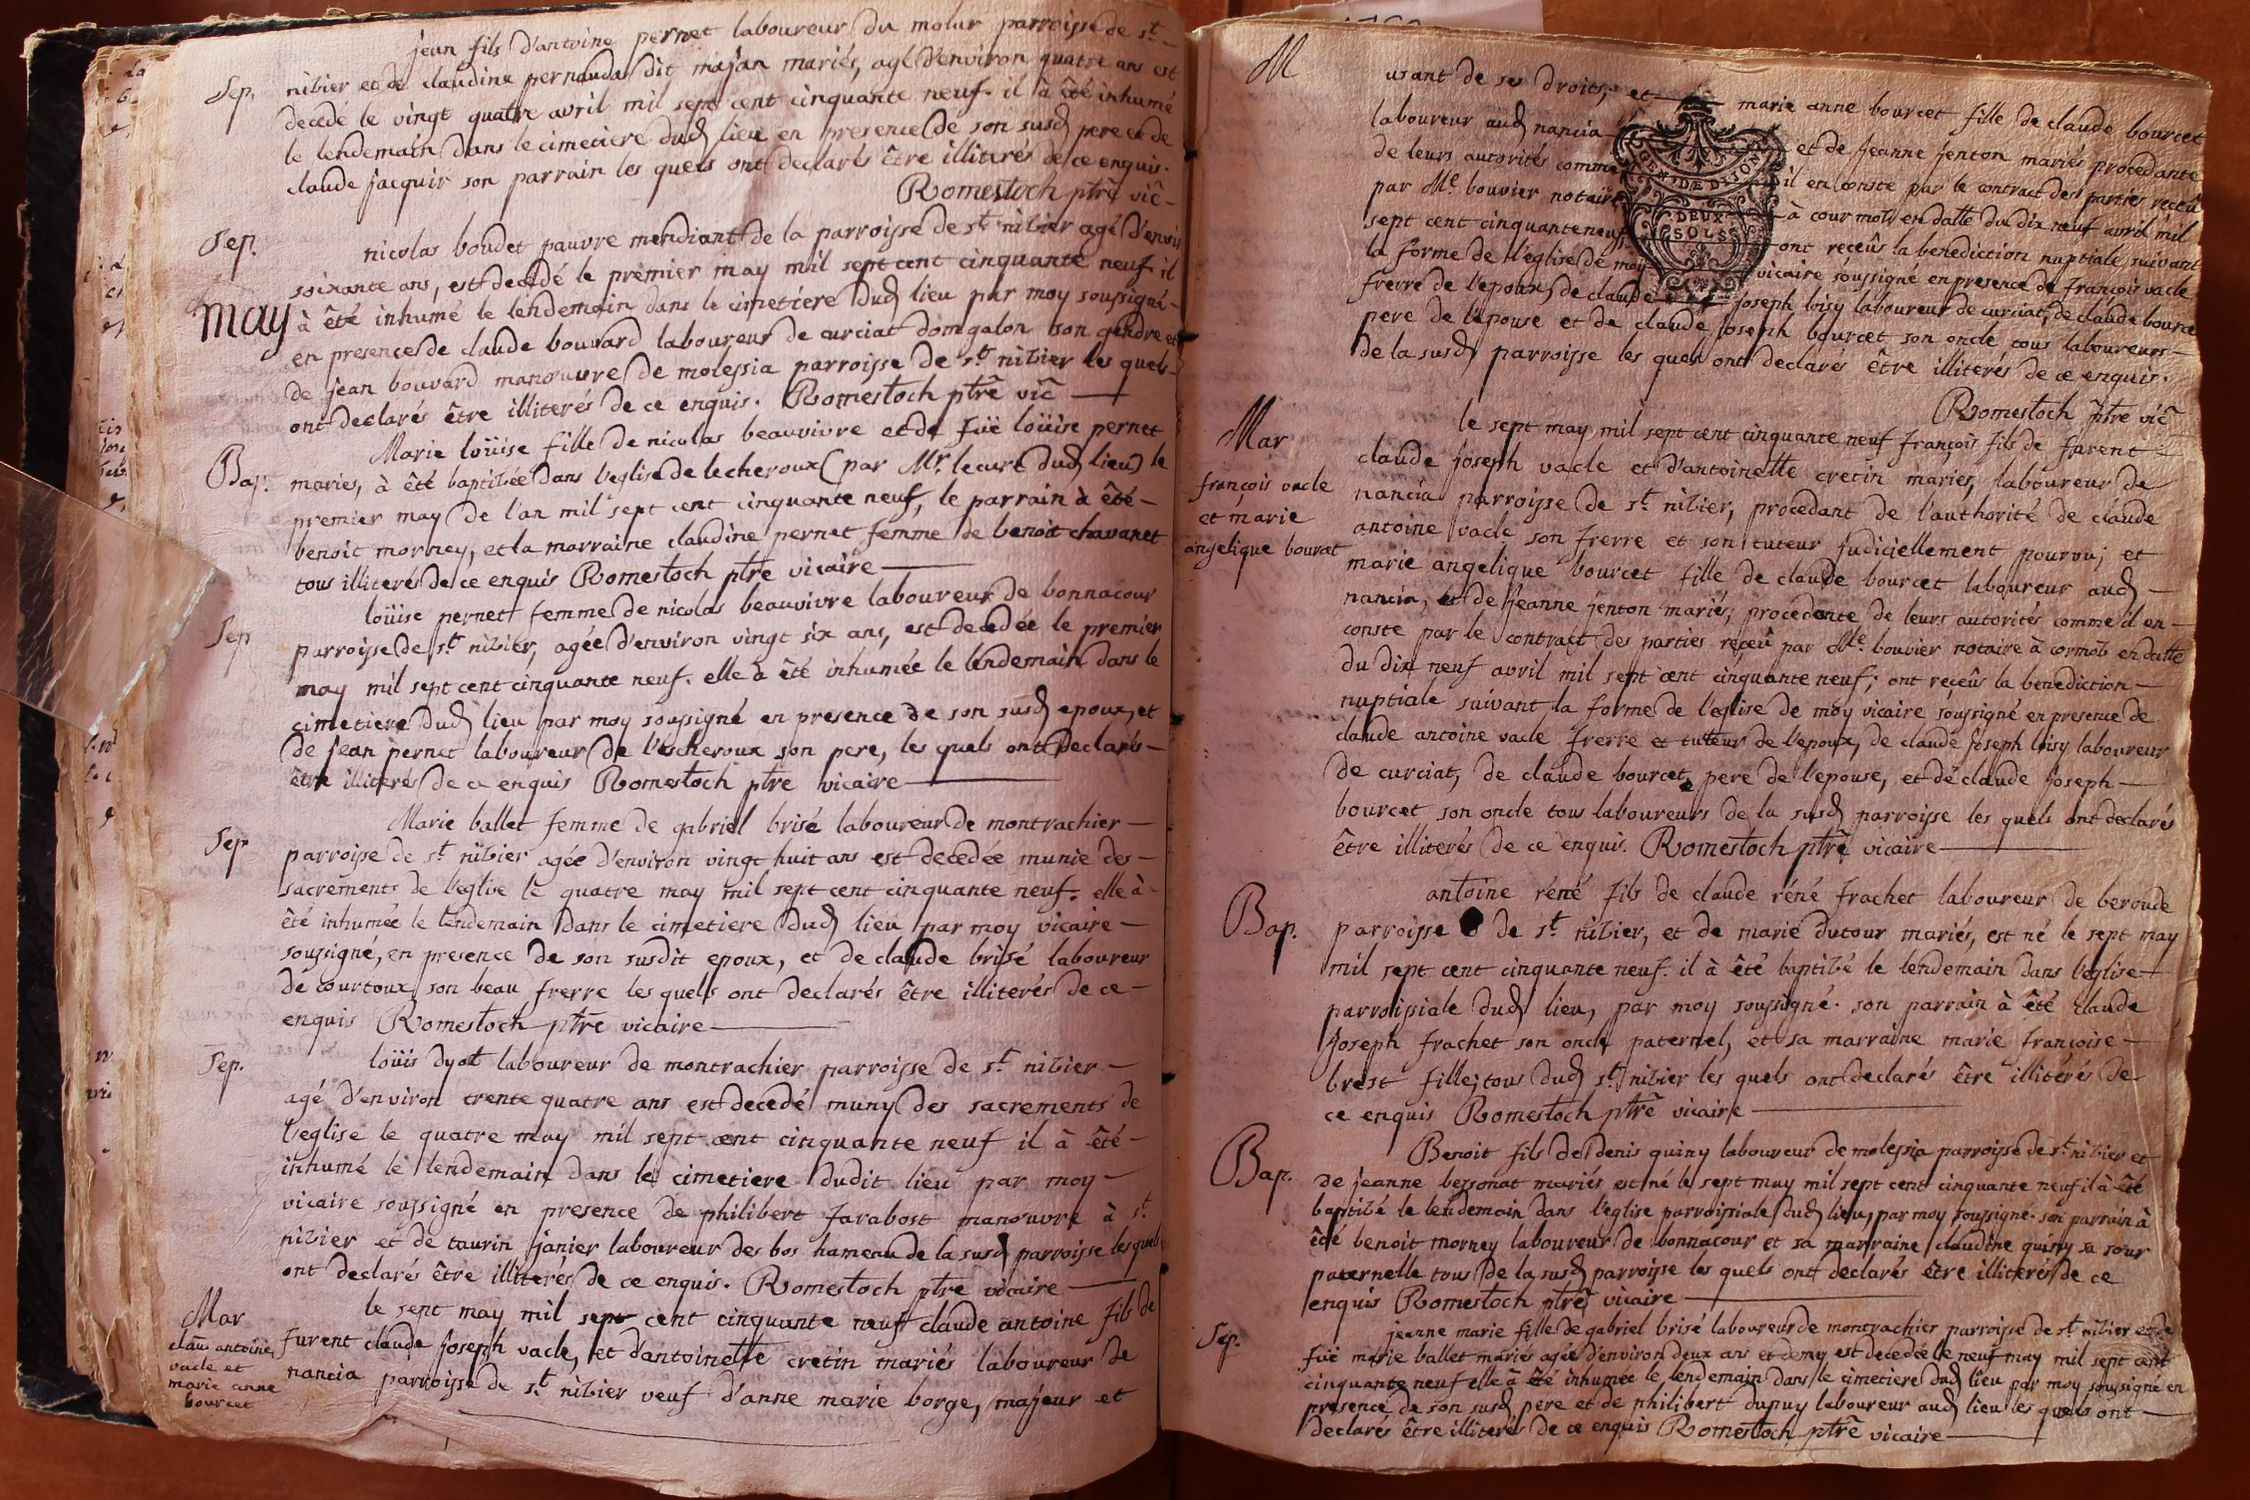 jean fils d'antoine pernet laboureur du molur parroisse de st
Sep. nibier et de claudine pernauda dit majan mariés, agé d'environ quatre ans est
decedé le vingt quatre avril mil sept cent cinquante neuf. il à été inhumé
le lendemain dans le cimetiere dud lieu en presence de son susd pere et de
claude jacquir son parrain les quels ont declarés être illiterés de ce enquis.
Romestoch ptre vic
Sep. nicolas boudet pauvre mendiant de la parroisse de st nibier agé d'environ
soixante ans, est decedé le premier may mil sept cent cinquante neuf. il
may à été inhumé le lendemain dans le cimetiere dud lieu par moy soussigné
en presence de claude bouvard laboureur de curciat domgalon son gendre et
de jean bouvard manœuvre de molessia parroisse de st nibier les quels
ont declarés être illiterés de ce enquis. Romestoch ptre vic
Marie loüise fille de nicolas beauvivre et de füe loüise pernet
Bap. mariés, à été baptibée dans l'eglise de lecheroux (par Mr. le curé dud lieu) le
premier may de l'an mil sept cent cinquante neuf, le parrain à été
benoit morney, et la marraine claudine pernet femme de benoit chavanet
tous illiterés de ce enquis Romestoch ptre vicaire
loüise pernet femme de nicolas beauvivre laboureur de bonnacour
Sep parroisse de st nibier, agée d'environ vingt six ans, est decedée le premier
may mil sept cent cinquante neuf. elle à été inhumée le lendemain dans le
cimetiere dud lieu par moy soussigné en presence de son susd epoux, et
de jean pernet laboureur de l'escheroux son pere, les quels ont declarés
être illiterés de ce enquis Romestoch ptre vicaire
Marie ballet femme de gabriel brisé laboureur de montrachier
Sep parroisse de st nibier agée d'environ vingt huit ans est decedée munie des
sacrements de l'eglise le quatre may mil sept cent cinquante neuf. elle à
été inhumée le lendemain dans le cimetiere dud lieu par moy vicaire
soussigné, en presence de son susdit epoux, et de claude brisé laboureur
de courtoux son beau frerre les quels ont declarés être illiterés de ce
enquis Romestoch ptre vicaire
Sep. loüis dyot laboureur de montrachier parroisse de st nibier
agé d'environ trente quatre ans est decedé muny des sacrements de
l'eglise le quatre may mil sept cent cinquante neuf il à été
inhumé le lendemain dans le cimetiere dudit lieu par moy
vicaire soussigné en presence de philibert farabost manœuvre à st
nibier et de taurin janier laboureur des bos hameau de la susd parroisse les quels
ont declarés être illiterés de ce enquis. Romestoch ptre vicaire
Mar le sept may mil sept cent cinquante neuf claude antoine fils de
clau antoine furent claude joseph vacle, et d'antoinette cretin mariés laboureur de
vacle et nancia parroisse de st nibier veuf d'anne marie borge, majeur et
marie anne
bourcet
M usant de ses droits, et marie anne bourcet fille de claude bourcet
laboureur aud nancia et de jeanne jenton mariés procedante
de leurs autorités comme il en conste par le contract des parties receû
par Me. bouvier notaire à cour mots en datte du dix neuf avril mil
sept cent cinquante neuf. ont receûs la benediction nuptiale suivant
la forme de l'église de moy vicaire soussigné en presence de françois vacle
frerre de l'epoux, de claude joseph loisy laboureur de curciat, de claude bource
GEN DE DIJON
DEUX
SOLS
pere de l'epouse et de claude joseph bourcet son oncle tous laboureurs
de la susd parroisse les quels ont declarés être illiterés de ce enquis.
Romestoch ptre vic
Mar le sept may mil sept cent cinquante neuf françois fils de furent
claude joseph vacle et d'antoinette cretin mariés, laboureur de
françois vacle nancia parroisse de st nibier, procedant de l'authorité de claude
et marie antoine vacle son frerre et son tuteur judiciellement pourvu; et
angelique bourcet marie angelique bourcet fille de claude bourcet laboureur aud
nancia, et de jeanne jenton mariés, procedante de leurs autorités comme il en
conste par le contract des parties reçeû par Me. bouvier notaire à cormots en datte
du dix neuf avril mil sept cent cinquante neuf; ont reçeûs la benediction
nuptiale suivant la forme de l'eglise de moy vicaire soussigné en presence de
claude antoine vacle frerre et tutteur de l'epoux, de claude joseph loisy laboureur
de curciat, de claude bourcet pere de l'epouse, et de claude joseph
bourcet son oncle tous laboureurs de la susd parroisse les quels ont declarés
être illiterés de ce enquis. Romestoch ptre vicaire
antoine réné fils de claude réné frachet laboureur de beroude
Bap. parroisse de st nibier, et de marie dutour mariés, est né le sept may
mil sept cent cinquante neuf. il à été baptibé le lendemain dans l'eglise
parroissiale dud lieu, par moy soussigné. son parrain à été claude
joseph frachet son oncle paternel, et sa marraine marie françoise
brest fille, tous dud st nibier les quels ont declarés être illitérés de
ce enquis Romestoch ptre vicaire
Benoit fils de denis quiny laboureur de molessia parroisse de st nibier et
Bap. de jeanne bessonat mariés est né le sept may mil sept cent cinquante neuf il à été
baptibé le lendemain dans l'eglise parroissiale dud lieu, par moy soussigné. son parrain à
été benoit morney laboureur de bonnacour et sa marraine claudine quiny sa sœur
paternelle tous de la susd parroisse les quels ont declarés être illiterés de ce
enquis Romestoch ptre vicaire
jeanne marie fille de gabriel brisé laboureur de montrachier parroisse de st nibier et de
Sep. füe marie ballet mariés agée d'environ deux ans et demy est decedée le neuf may mil sept cent
cinquante neuf elle à été inhumée le lendemain dans le cimetiere dud lieu par moy soussigné en
presence de son susd pere et de philibert dupuy laboureur aud lieu les quels ont
declarés être illiterés de ce enquis Romestoch ptre vicaire